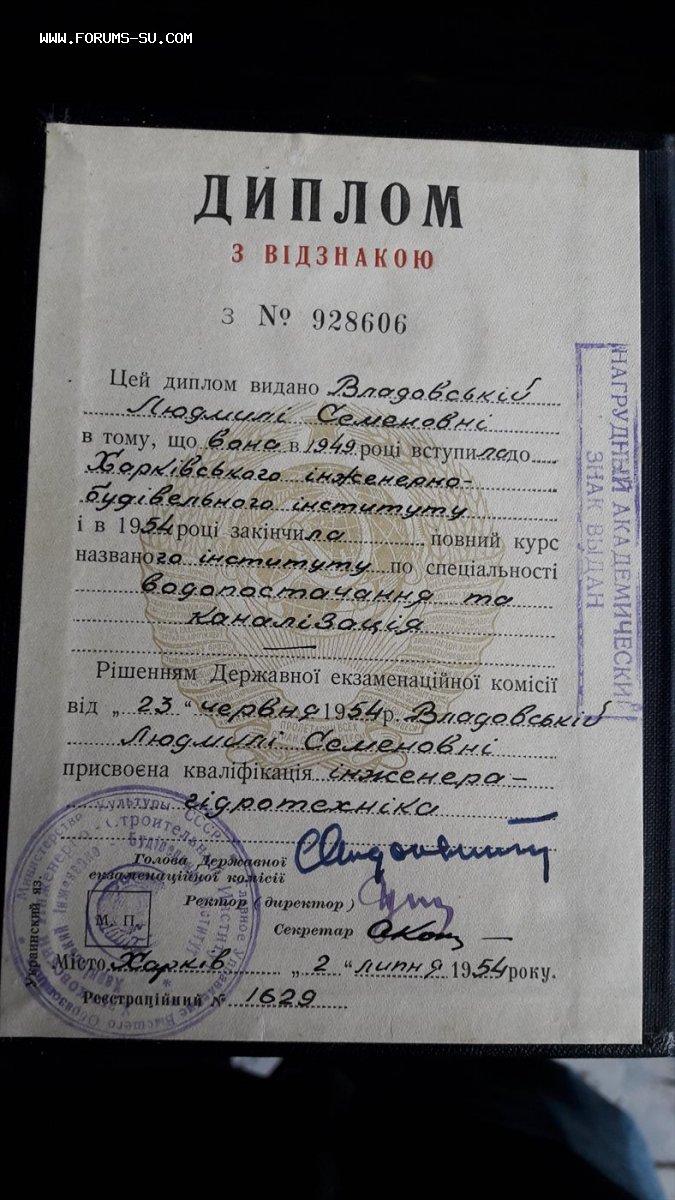 WWW.FORUMS-SU.COM
ДИПЛОМ
З ВІДЗНАКОЮ
З № 928606
Цей диплом видано Владовській
Людмилі Семеновні
в тому, що вона в 1949 році вступила до
Харківського інженерно-
будівельного інституту
і в 1954 році закінчила повний курс
названого інституту по спеціальності
водопостачання та
каналізація
Рішенням Державної екзаменаційної комісії
від „23“ червня 1954 р. Владовській
Людмилі Семеновні
присвоєна кваліфікація інженера-
гідротехніка
Голова Державної
екзаменаційної комісії
Ректор (директор)
Секретар
М. П.
Місто Харків „2“ липня 1954 року.
Реєстраційний № 1629
Украинский яз.
НАГРУДНЫЙ АКАДЕМИЧЕСКИЙ
ЗНАК ВЫДАН
Министерство Культуры СССР Главное Управление Высшего Образования